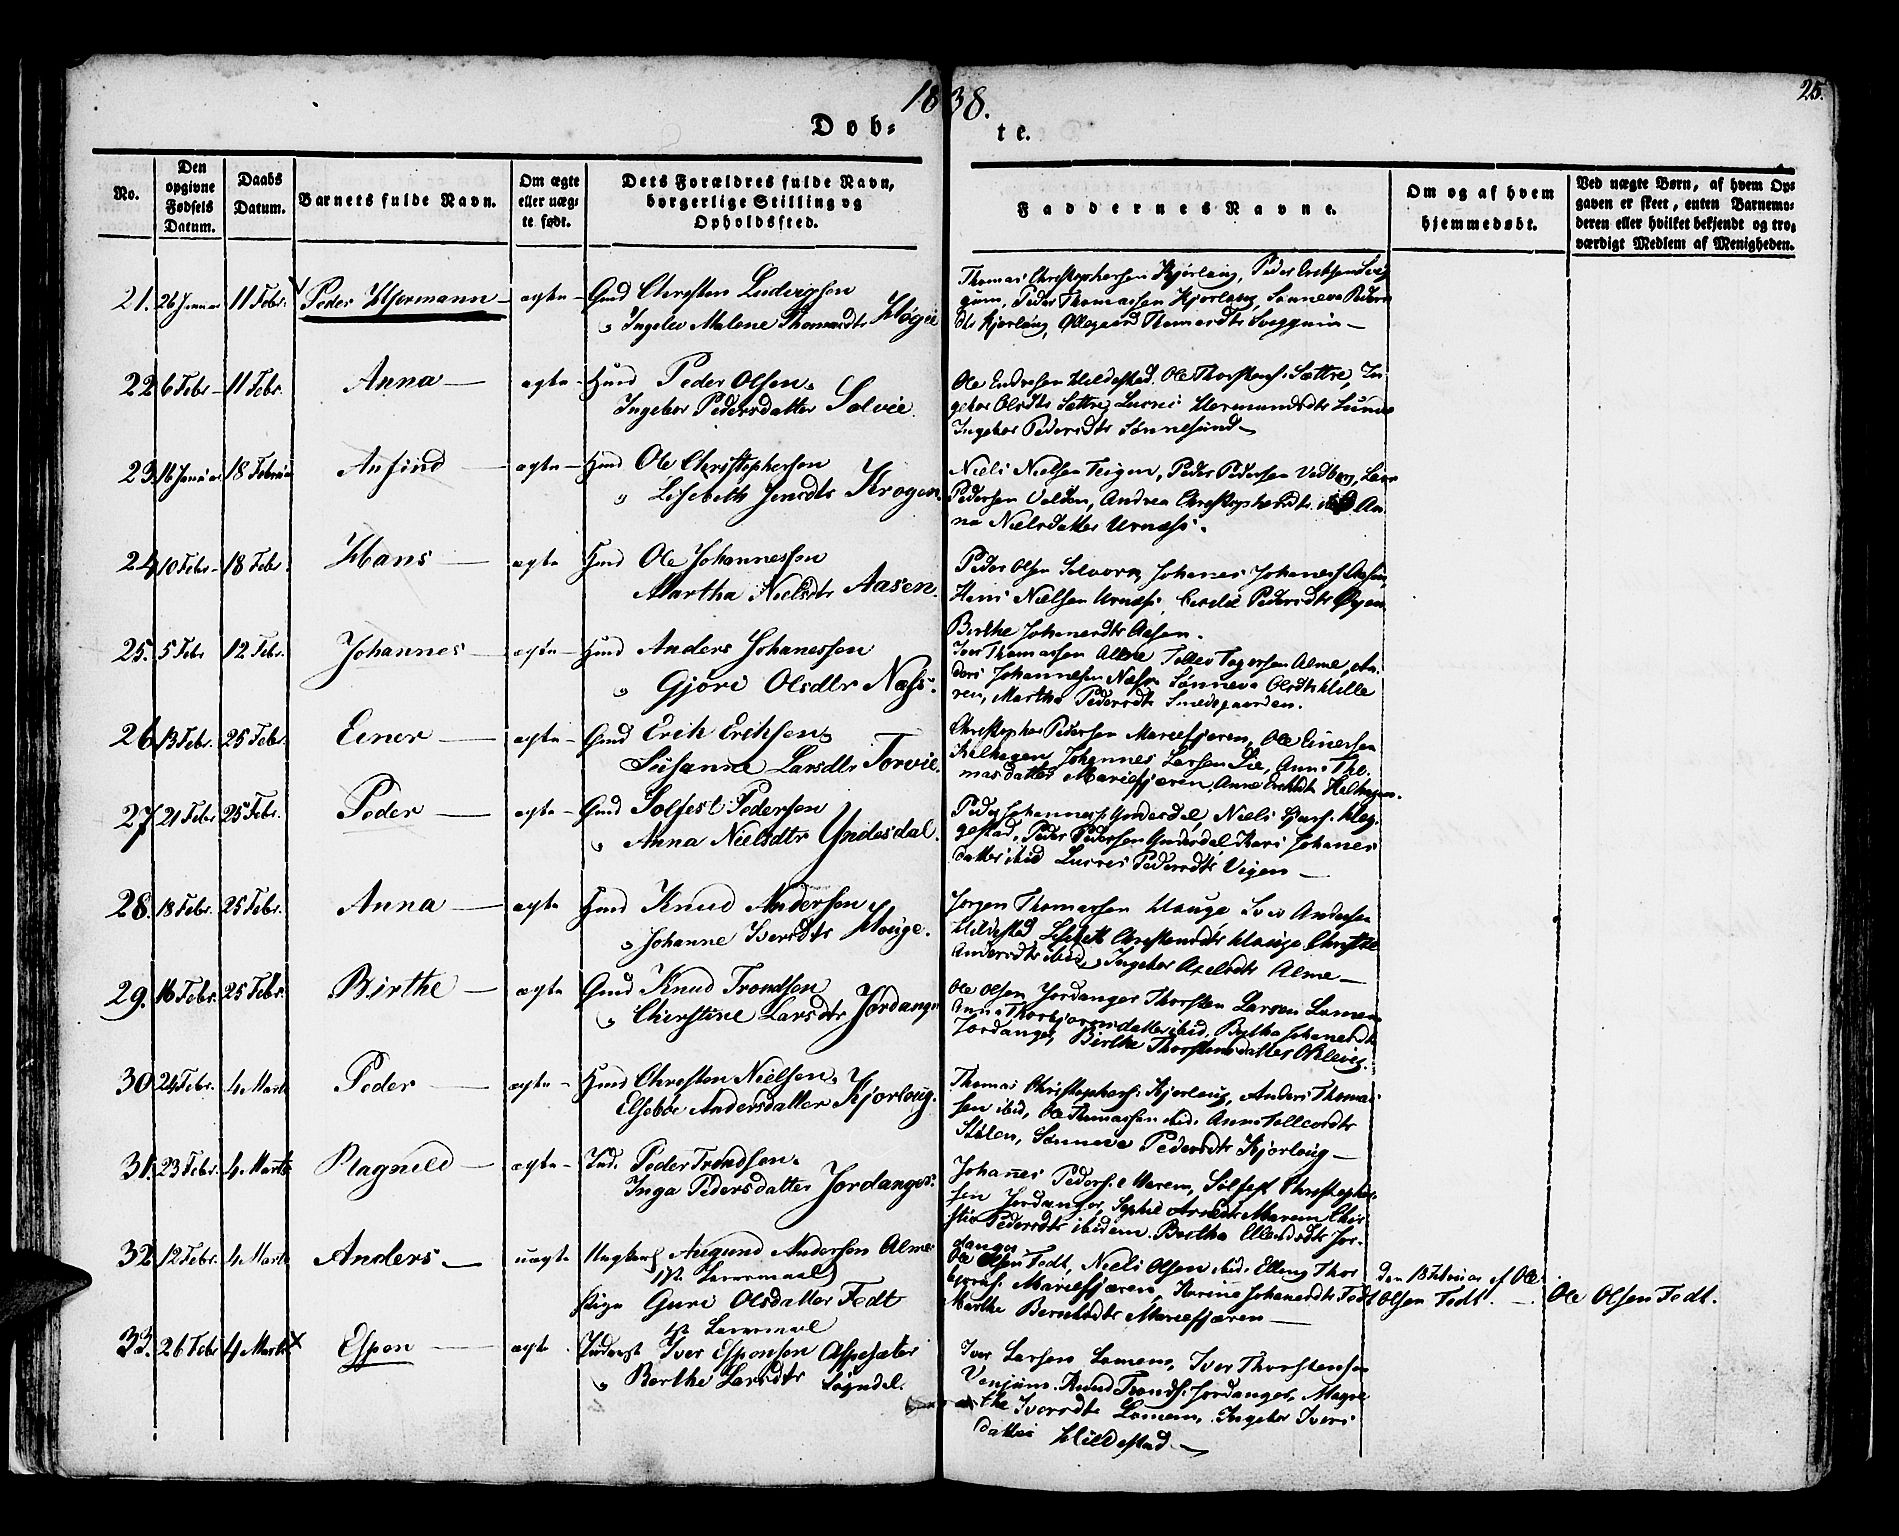 1838.
25.
Døb-
te.
No.
Den opgivne Fødsels Datum.
Daabs Datum.
Barnets fulde Navn.
Om ægte eller uægte født.
Dets Forældres fulde Navn, borgerlige Stilling og Opholdssted.
Faddernes Navne.
Om og af hvem hjemmedøbt.
Ved uægte Børn, af hvem Opgaven er skeet, enten Barnemoderen eller hvilket bekjendt og troværdigt Medlem af Menigheden.
21. 26 Januar 11 Febr. Peder Hermann ægte Gmd Christen Ludvigsen
" Ingelev Malene Thomasdtr Høgi
Thomas Christophersen Kjørloug, Peder Erichsen Svég
gum, Peder Thomassen Kjørloug, Sønneva Peders
dtr Kjørloug, Ollegaard Thomasdtr Sveggum
22 6 Febr 11 Febr. Anna ægte Huusmd Peder Olsen
Ingebor Pedersdatter Solvie.
Ole Endresen Hildestad. Ole Thorstens. Sættre, In
gebor Olsdtr Sættre, Hermundsdtr
Ingebor Pedersdtr Sønnesand
23 16 Januar 18 Februar Anfind ægte Hmd Ole Christophersen
" Lisebeth Jensdtr Krogen.
Niels Nielsen Teigen, Peder Pedersen Vedberg, Lars
Pedersen Volden, Andrea Christophersdtr ibid. An
na Nielsdatter Urnæs.
24 10 Febr. 18 Febr. Hans ægte Hmd Ole Johannessen
Martha Nielsdtr Aasen.
Peder Olsen Solvorn, Johanes Johaness. Aasen,
Hans Nielsen Urnæs, Pedersdtr Øyen
Birthe Johanesdtr Aasen.
25. 5 Febr 12 Febr. Johannes ægte Hmd Anders Johanessen
" Gjøri Olsdtr Næss.
Iver Thomassen Alme, Tollev Alme, An
ders Johannesen Næss, Sønneva Olsdtr Hille
ren, Martha Pedersdtr Smedegaarden.
26 13 Febr. 25 Febr. Einer ægte Gmd Erich Erichsen
Susanne Larsdtr Torvie.
Christopher Pedersen Mariefjæren, Ole Einersen
Kalhagen, Johannes Larsen Lie, Anna Tho
masdatter Mariefjæren, Anne Erichsdtr
27 21 Febr 25 Febr. Peder ægte Gmd Solfest Pedersen
" Anna Nielsdtr Yndesdal.
Peder Johanness. Yndesdal, Niels
gestad, Peder Pedersen Yndesdal, Kari Johanes
datter ibid, Pedersdtr Vigen
28. 18 Febr. 25 Febr. Anna ægte Hmd Knud Andersen
" Johanne Iversdtr Houge.
Jørgen Thomassen Houge, Iver Andersen
Hildestad, Lisebeth Christensdtr Houge, Christie
Andersdtr ibid, Ingebor Axelsdtr Alme
29. 16 Febr. 25 Febr. Birthe ægte Gmd Knud Trondsen
" Chirstine Larsdtr Jordanger
Ole Olsen Jordanger, Thorsten Larsen Lomen
Anna Thorbjørnsdatter ibid, Johanesdtr
Jordanger, Birthe Thorstensdatter
30 24 Febr. 4 Marts Peder ægte Hmd Christen Nielsen
Elsebøe Andersdatter Kjørloug.
Thomas Christophers. Kjørloug, Anders Thomas
sen ibid, Ole Thomassen ibid. Anna Tollevsdtr
Stølen, Sønneva Pedersdtr Kjørloug
31. 23 Febr. 4 Marts Ragnild ægte Ind. Peder Trondsen
Inga Pedersdatter Jordanger.
Johanes Peders. Marem, Solfest Christopher
sen Jordanger, Sophie Marem, Chir
stie Pedersdtr ibidem, Birtha Ellendsdtr Jor-
danger
32 12 Febr. 4 Marts Anders uægte Ungkarl Augund Andersen Alme
1ste Leiermaal
Pige Guri Olsdatter Fedt
1st Leiermaal
Ole Olsen Fedt, Niels Olsen ibid. Elling Thor
Mariefjæren, Karine Johanesdtr Fedt
Marthe Mariefjæren
Den 18 Februar af Ole
Olsen Fedt.
Ole Olsen Fedt.
33. 26 Febr 4 Marts x Espen ægte Inderst Iver Espensen Aspesæter
" Berthe Larsdtr Sogndal.
Iver Larsen Lomen, Iver Thorstensen
Venjum, Knud Tronds. Jordanger, Magre
the Iversdtr Lomen, Ingebor Ivers
datter Hildestad